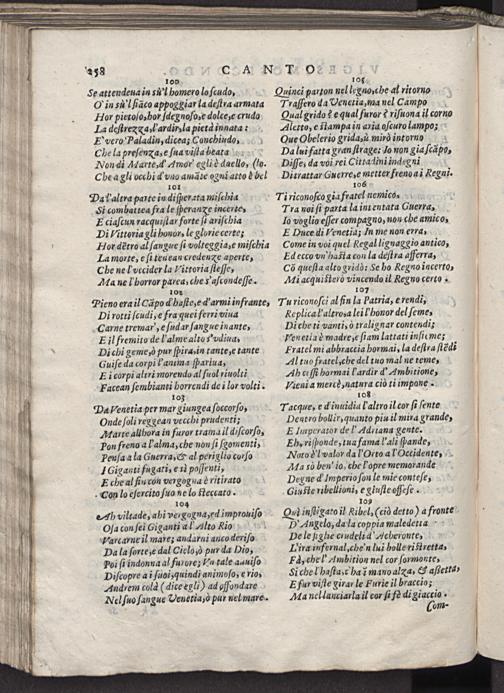 258 CANTO
100
Se attendeua in sù'l homero lo scudo,
O in sù'l fiãco appoggiar la destra armata
Hor pietoso, hor sdegnoso, e dolce, e crudo
La destrezza, l'ardir, la pietà innata:
E' vero Paladin, dicea; Conchiudo,
Che la presenza, e sua vista beata
Non di Marte, d'Amor' egli è duello, (lo.
Che a gli occhi d'vno amãte ogni atto è bel
101
Da l'altra parte in disperata mischia
Si combattea fra le speranze incerte,
E ciascun racquistar forte si arischia
Di Vittoria gli honor, le glorie certe;
Hor dẽtro al sangue si volteggia, e mischia
La morte, e si tenean credenze aperte,
Che ne l'vccider la Vittoria stesse,
Ma ne l'horror parea, che s'ascondesse.
102
Pieno era il Cãpo d'haste, e d'armi infrante,
Di rotti scudi, e fra quei ferri viua
Carne tremar', e sudar sangue inante,
E il fremito de l'alme alto s'vdiua,
Di chi geme, ò pur spira, in tante, e tante
Guise da corpi l'anima spariua,
E i corpi altri morendo al suol riuolti
Facean sembianti horrendi de i lor volti.
103
Da Venetia per mar giungea soccorso,
Onde soli reggean vecchi prudenti;
Marte allhora in furor trama il discorso,
Pon freno a l'alma, che non si sgomenti,
Pensa a la Guerra, & al periglio corso
I Giganti fugati, e sì possenti,
E che al fin cõn vergogna è ritirato
Con lo esercito suo ne lo steccato.
104
Ah viltade, ahi vergogna, ed improuiso
Osa con sei Giganti a l'Alto Rio
Varcarne il mare; andarui anco deriso
Da la sorte, e dal Cielo, ò pur da Dio,
Poi si indonna al furore; Vn tale auuiso
Discopre a i suoi, quindi animoso, e rio,
Andrem colà (dice egli) ad affondare
Nel suo sangue Venetia, ò pur nel mare.
105
Quinci parton nel legno, che al ritorno
Trassero da Venetia, ma nel Campo
Qual grido è e qual furor è risuona il corno
Aletto, e stampa in aria oscuro lampo;
Que Obelerio grida, ù mirò intorno
Da lui fatta gran strage: Io non già scãpo,
Disse, da voi rei Cittadini indegni
Di trattar Guerre, e metter freno ai Regni.
106
Ti riconosco gia fratel nemico,
Tra noi si parta la intentata Guerra,
Io voglio esser compagno, non che amico,
E Duce di Venetia; In me non erra,
Come in voi quel Regal lignaggio antico,
Ed ecco vn'hasta con la destra afferra,
Cõ questa alto gridò: Se ho Regno incerto,
Mi acquisterò vincendo il Regno certo.
107
Tu riconosci al fin la Patria, e rendi,
Replica l'altro, a lei l'honor del seme,
Di che ti vanti, ò tralignar contendi;
Venetia è madre, e siam lattati insieme;
Fratel mi abbraccia hormai, la destra stẽdi
Al tuo fratel, che del tuo mal ne teme,
Ah cessi hormai l'ardir d'Ambitione,
Vieni a mercè, natura ciò ti impone.
108
Tacque, e d'inuidia l'altro il cor si sente
Dentro bollir, quanto piu il mira grande,
E Imperator de l'Adriana gente.
Eh, risponde, tua fama l'ali spande,
Noto è'l valor da l'Orto a l'Occidente,
Ma sò ben'io, che l'opre memorande
Degne d'Imperio son le mie contese,
Giuste ribellioni, e giuste offese.
109
Quì instigato il Ribel, (ciò detto) a fronte
D'Angelo, da la coppia maledetta
De le figlie crudeli d'Acheronte,
L'ira infernal, che'n lui bolle ristretta,
Fà, che l'Ambition nel cor sormonte,
Si che l'hasta, c'ha ĩ mano alza, & assetta,
E fur viste girar le Furie il braccio;
Ma nel lanciarla il cor si fè di giaccio.
Com-